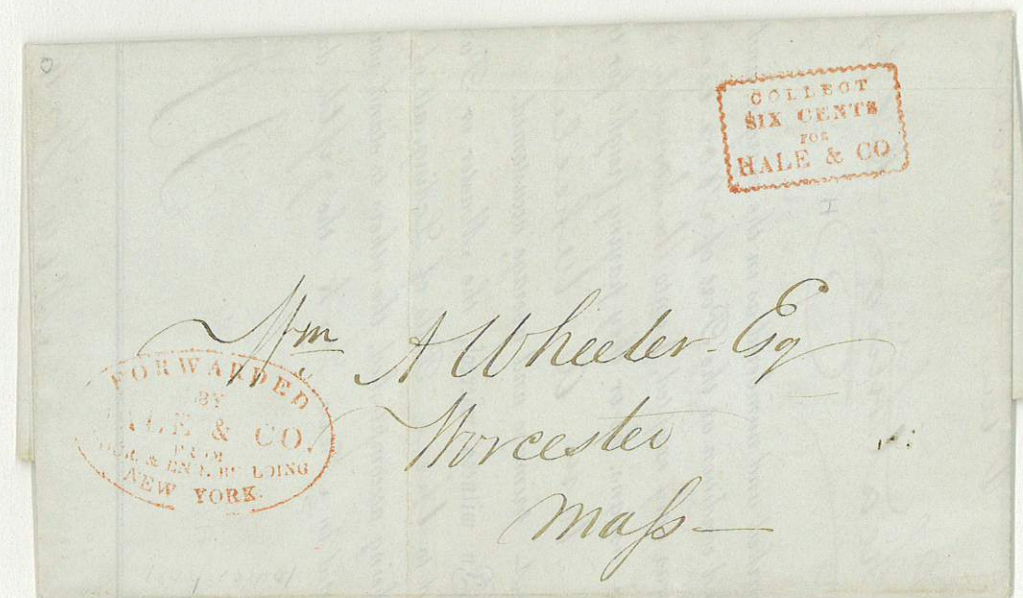 COLLECT
SIX CENTS
FOR
HALE & CO
Wm A Wheeler Esq
Worcester
Mass
FORWARDED
BY
HALE & CO.
FROM
& BUILDING
NEW YORK.